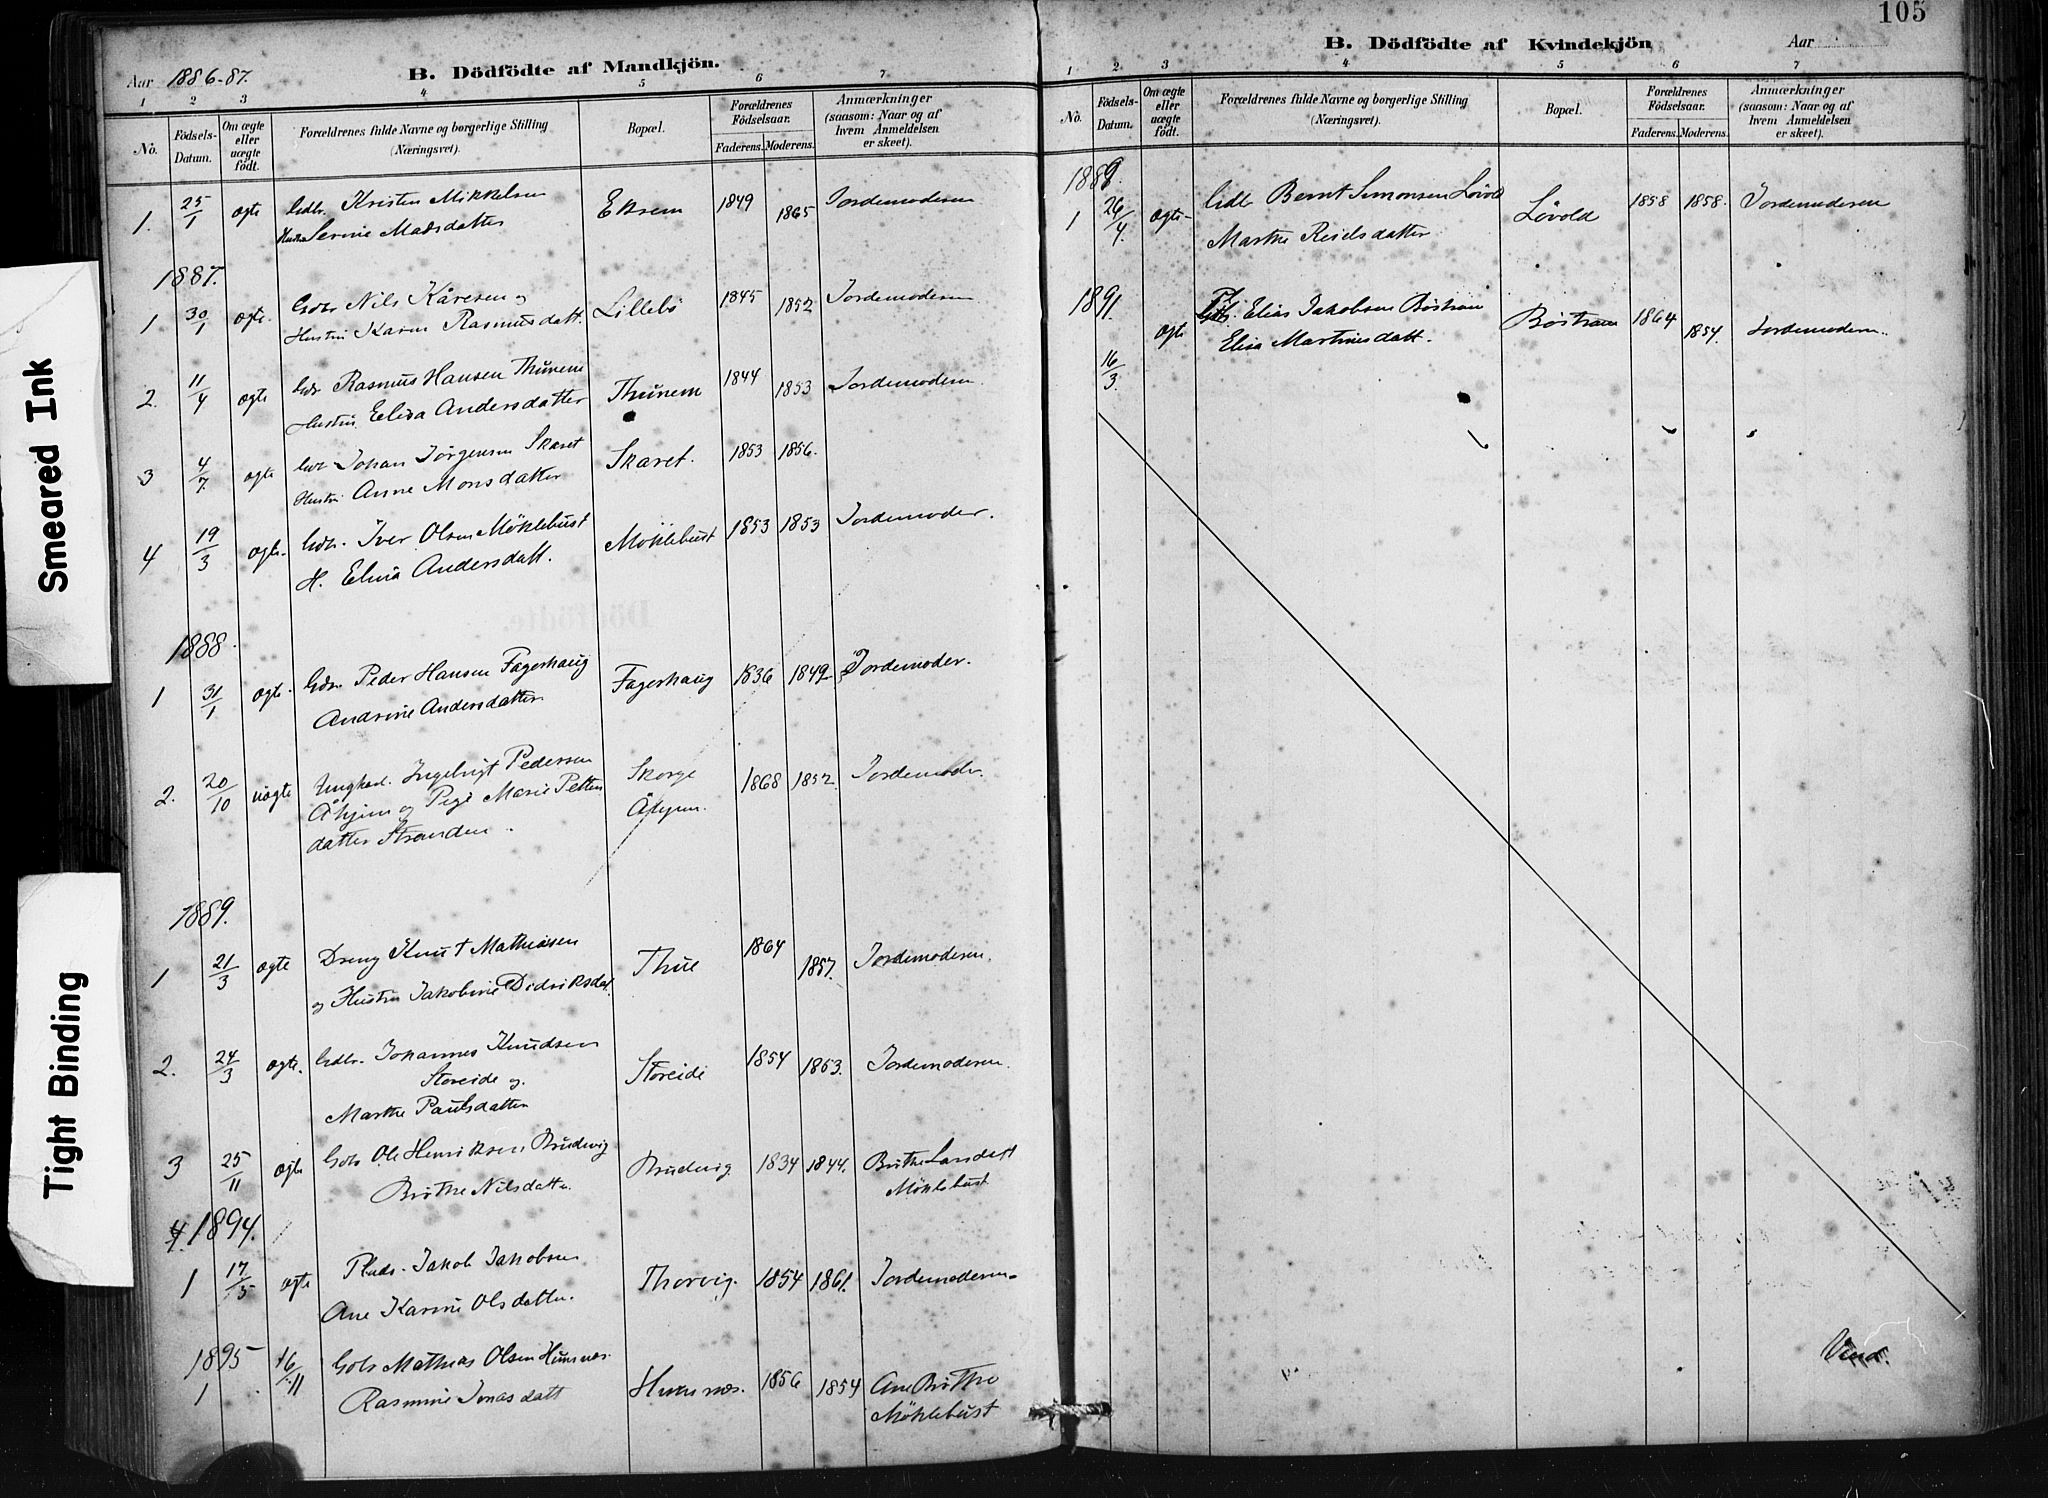 105
Aar 1886-87.
B. Dödfödte af Mandkjön.
1 2 3 4 5 6 7
No.
Födsels-Datum.
Om ægte eller uægte födt.
Forældrenes fulde Navne og borgerlige Stilling (Næringsvei).
Bopæl.
Forældrenes Födselsaar.
Faderens. Moderens.
Anmærkninger (saasom: Naar og af hvem Anmeldelsen er skeet).
1. 25/1 ægte Gdbr. Kristen Mikkelsen Eksem 1849 1865 Jordemoderen
Hustru Serine Madsdatter
1887.
1 30/1 ægte. Gdbr Nils Kåresen og Lillebö 1845 1852 Jordemoderen
Hustru Karen Rasmusdatt.
2. 11/4 ægte Gdr Rasmus Hansen Thunem Thunem 1844 1853 Jordemoderen.
Hustru Elisa Andersdatter
3 4/7 ægte Gdr Johan Jörgensen Skaret Skaret. 1853 1856.
Hustru Anne Monsdatter
4 19/3 ægte. Gdbr. Iver Olsen Möklebust Möklebust 1853 1853 Jordemoder.
H. Elisa Andersdatt.
1888.
1 31/1 ægte. Gdbr. Peder Hansen Fagerhaug Fagerhaug 1836 1849 Jordemoder.
Andrine Andersdatter
2. 20/10 uægte Ungkarl. Ingebrigt Pedersen Skorge 1868 1852 Jordemoder.
Åhjem og Pige Marie Petters Åhjem.
datter Stranden.
1889.
1 21/3 ægte Dreng Knut Mathiasen Thue 1864 1857. Jordemoderen.
og Hustru Jakobine Didriksdat.
2. 24/3 ægte. Gdbr. Johannes Knudsen Storeide 1854 1853. Jordemoderen.
Storeide og
Marthe Paulsdatter
3 25/11 ægte Gdbr Ole Henriksen 1834 1844. Brithe Larsdatt
Brithe Nilsdatter. Möklebust
1894.
1 17/5 ægte Jakob Jakobsen Thorvig. 1854 1861. Jordemoderen
Ane Karine Olsdatter.
1895 16/11 Gdbr Mathias Olsen Hunnes Hunnes. 1856 1854 Ane Brithe
1 Rasmine Jonasdatt Möklebust
B. Dödfödte af Kvindekjön
Aar
1 2 3 4 5 6 7
No.
Födsels-Datum.
Om ægte eller uægte födt.
Forældrenes fulde Navne og borgerlige Stilling (Næringsvei).
Bopæl.
Forældrenes Födselsaar.
Faderens. Moderens.
Anmærkninger (saasom: Naar og af hvem Anmeldelsen er skeet).
1889.
1 26/4. ægte Gdbr Bernt Simonsen Lövold Lövold 1858 1858. Jordemoderen
Marthe Reielsdatter
1891.
16/3. ægte Elias Jakobsen 1864 1854. Jordemoderen.
Elisa Martinusdatt.
Vend.
Smeared Ink
Tight Binding